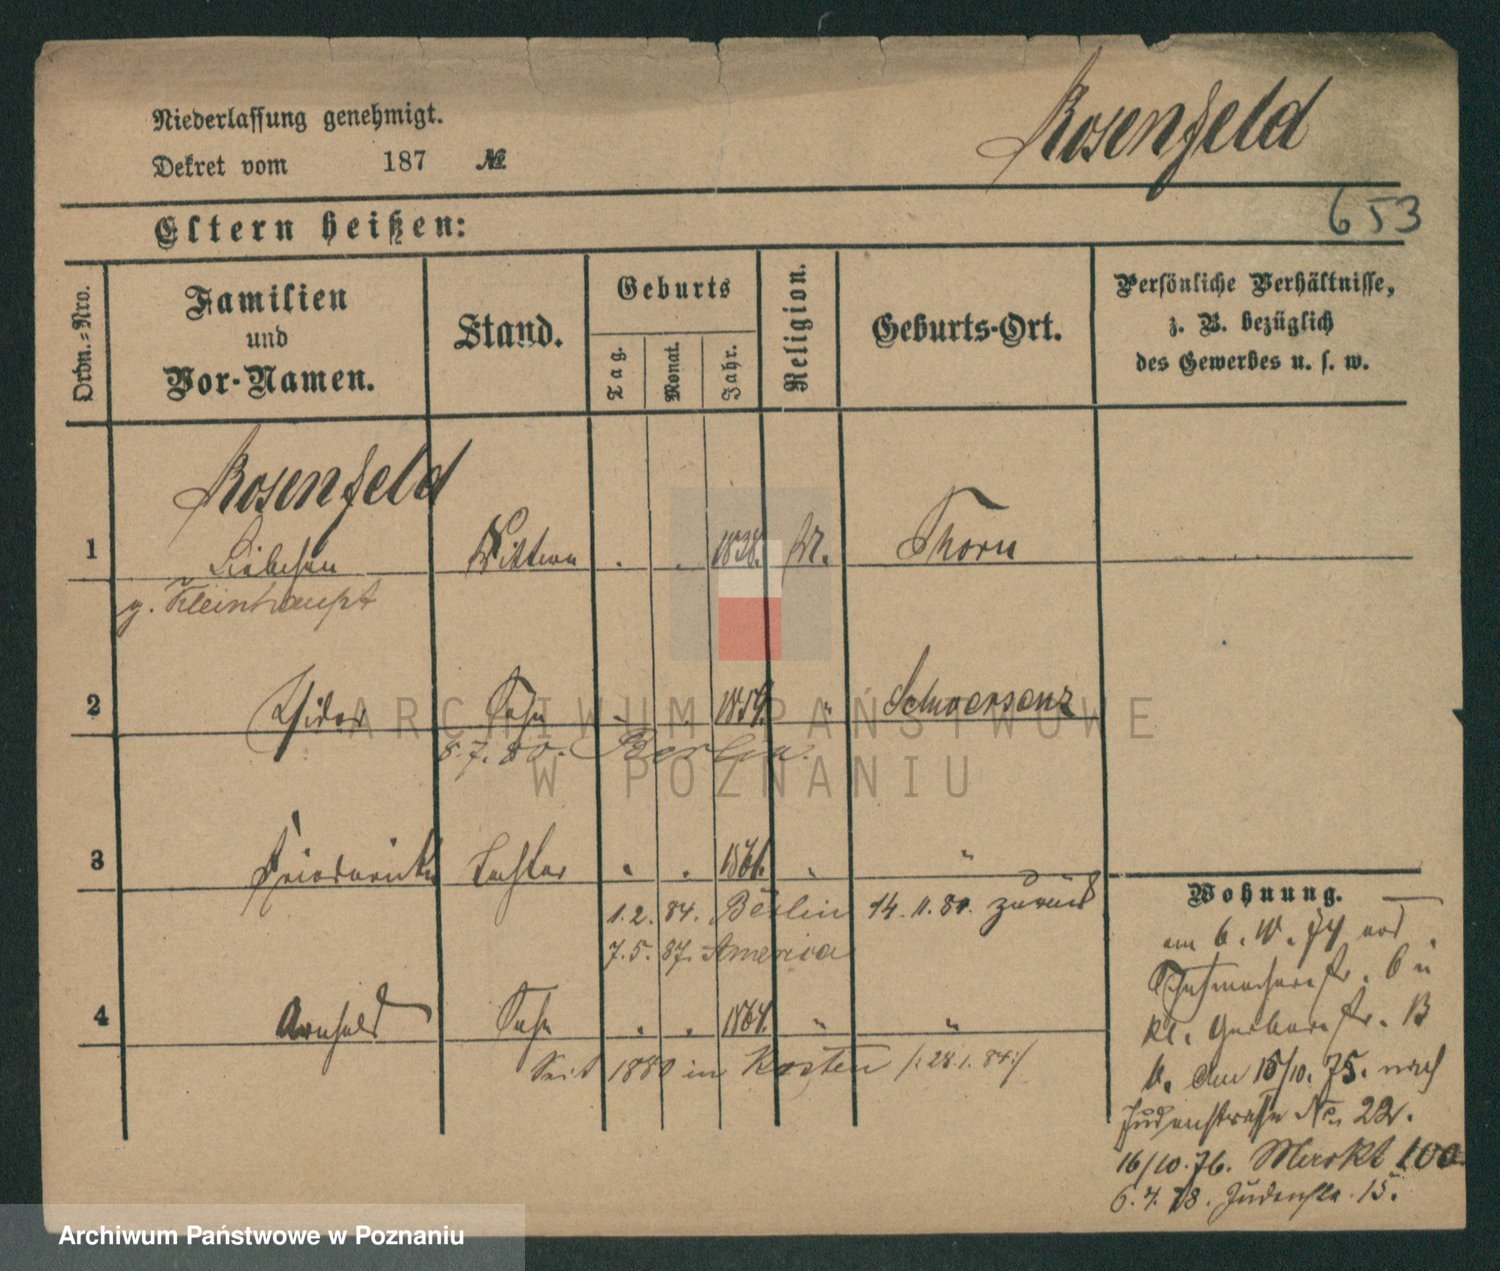 Niederlassung genehmigt.
Dekret vom 187 №
Rosenfeld
653
Eltern heißen:
Ordn.-Nro.
Familien
und
Vor-Namen.
Stand.
Geburts
Tag.
Monat.
Jahr.
Religion.
Geburts-Ort.
Persönliche Verhältnisse,
z. B. bezüglich
des Gewerbes u. s. w.
Rosenfeld
1 Liebchen Wittwe . . 1838. M. Thorn
g. Kleinhaupt
2 Isidor Sohn . . 1859. " Schwersenz
5.7.80. Berlin.
3 Friederike Tochter . . 1861. " "
1.2.84. Berlin 14.11.84. zurück
7.5.87. America
4 Arnhold Sohn . . 1864. " "
Seit 1880 in Kosten /:28.1.84:/
Wohnung.
am 6. 74
Schuhmacherstr. 6 u
kl. Gerberstr. 13
v. Am 15/10. 75. nach
Judenstraße No. 22.
16/10.76. Markt 100.
6.4.78. Judenstr. 15.
ARCHIWUM PAŃSTWOWE
W POZNANIU
Archiwum Państwowe w Poznaniu